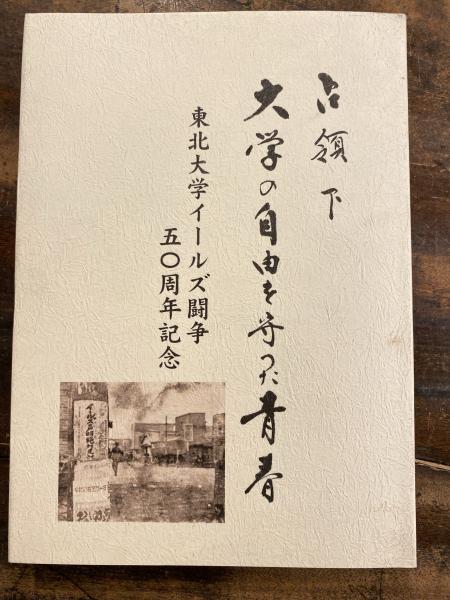 占領下
大学の自由を守った青春
東北大学イールズ闘争
五〇周年記念